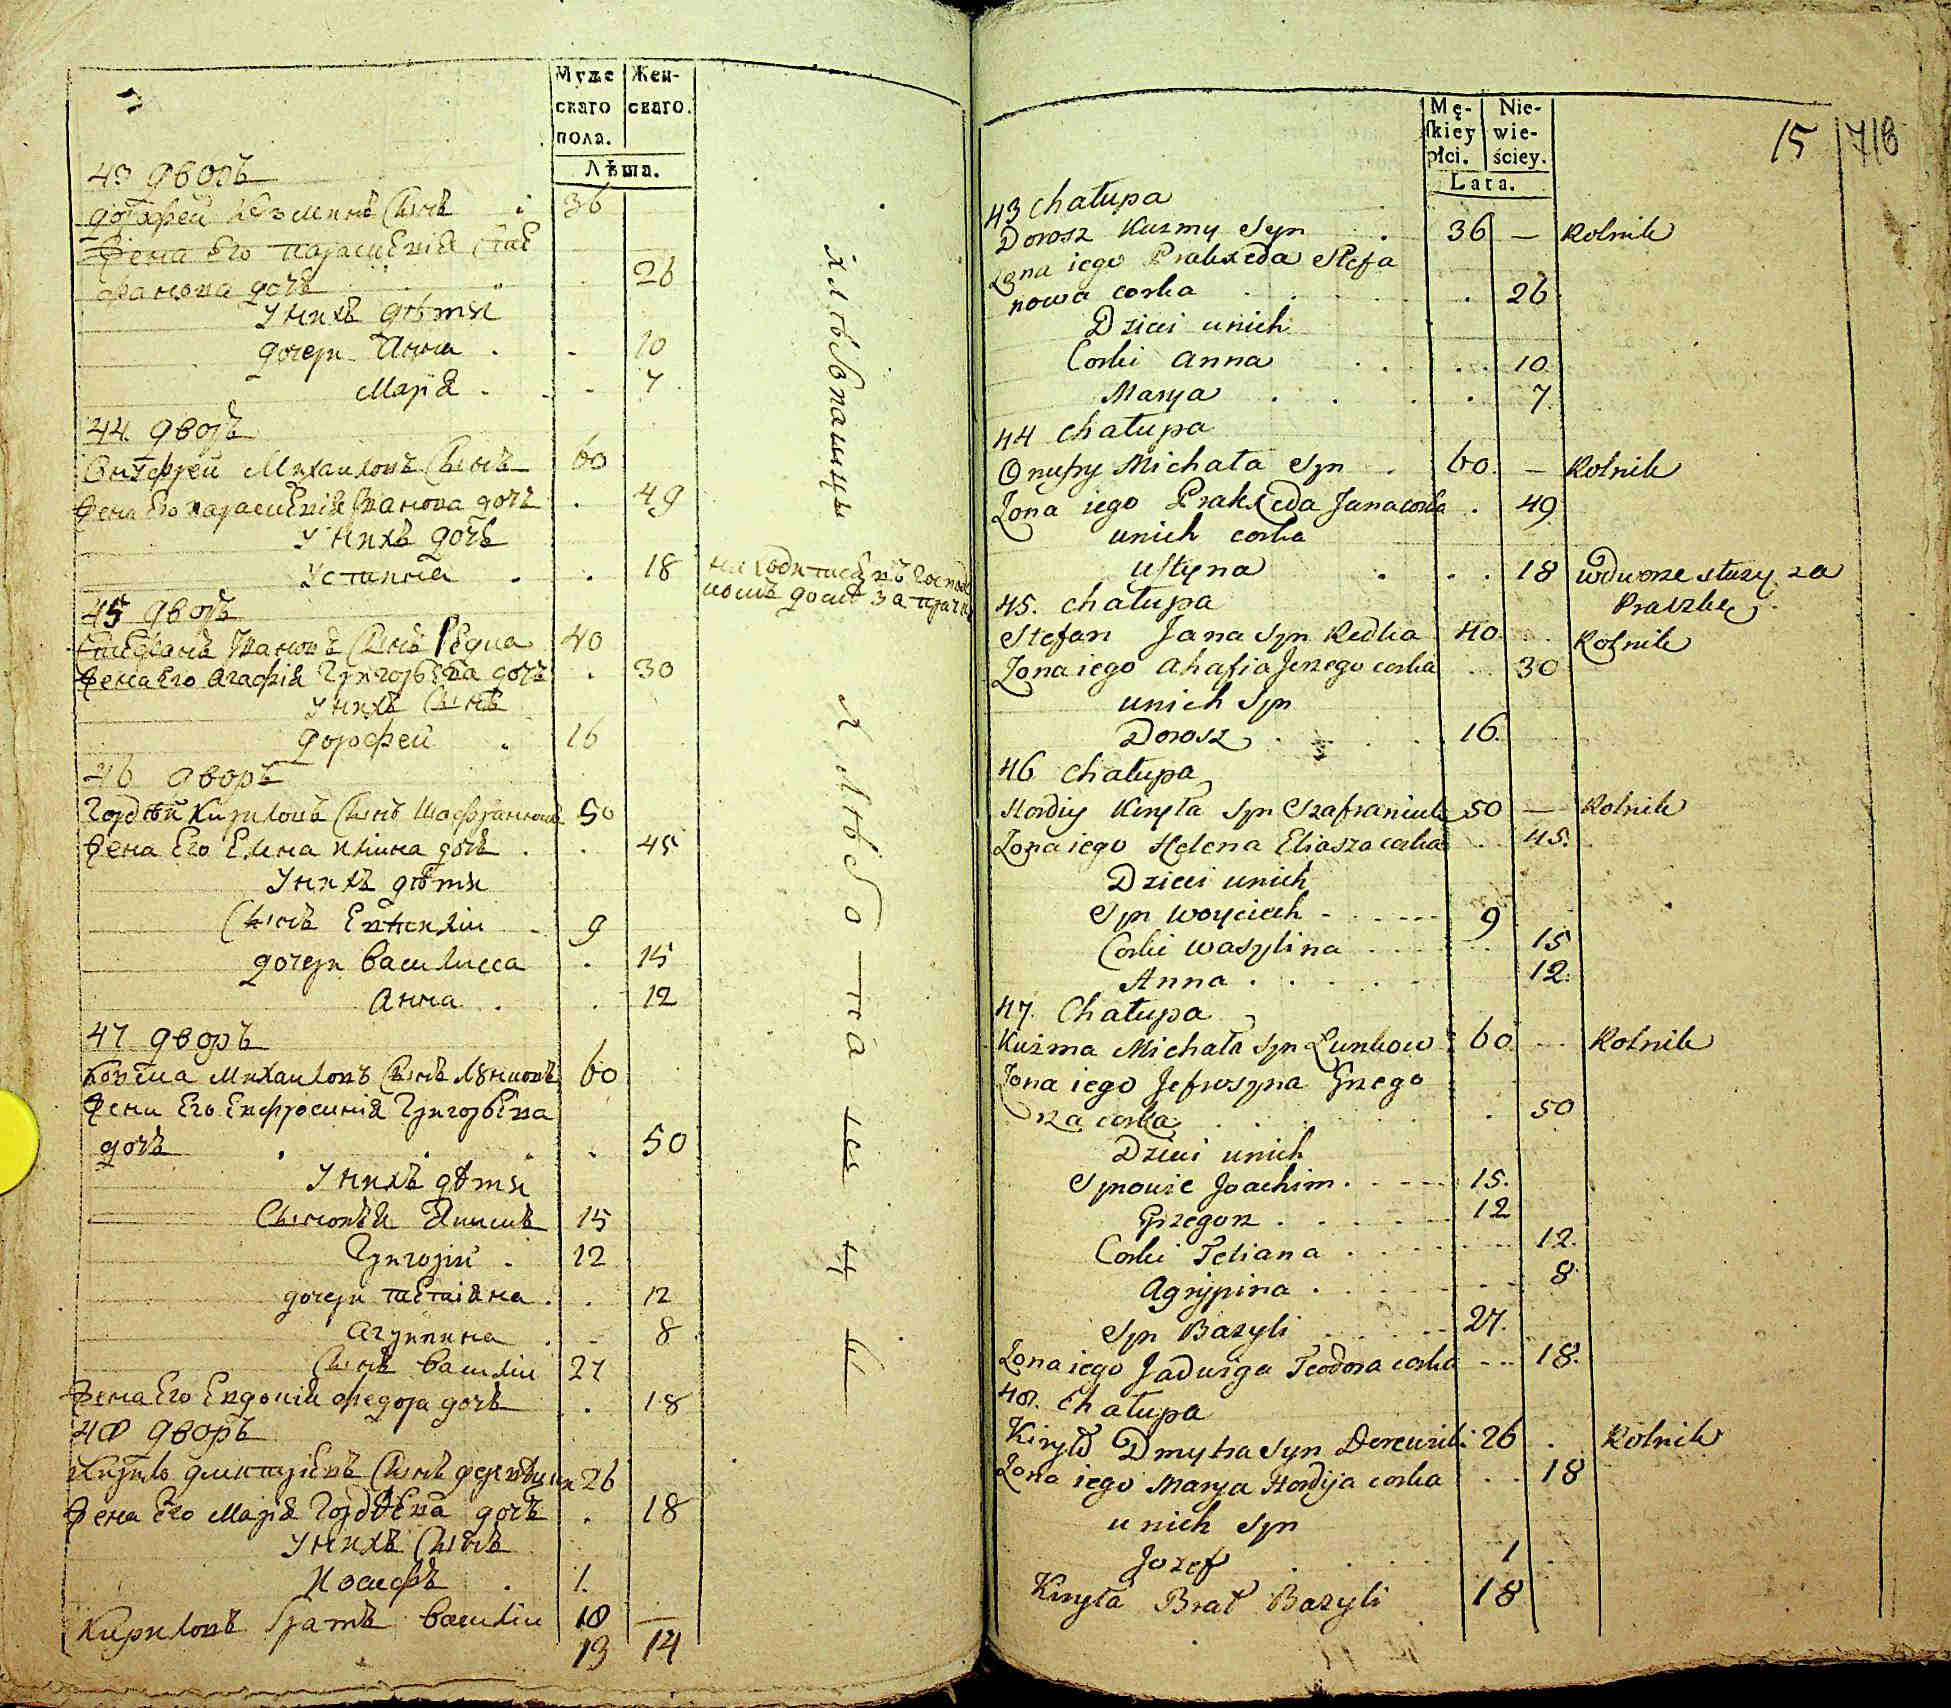 Муже
скаго
пола.
Жен-
скаго.
Лѣта.
43 дворъ
Дорофей Козминъ сынъ 36
Жена его Параскевія Сте
фанова дочь 26
У нихъ дѣти
дочери Анна 10
Марія 7
44 дворъ
Онуфрей Михаиловъ сынъ 60
Жена его Параскевія Иванова дочь 49
У нихъ дочь
Устинія 18
находится въ Господ
домѣ за прач
45 дворъ
Стефанъ Ивановъ сынъ Редка 40
Жена его Агафія Григорьева дочь 30
У нихъ сынъ
Дорофей 16
46 дворъ
Гордѣй Кириловъ сынъ 50
Жена его Елена Иліина дочь 45
У нихъ дѣти
сынъ 9
дочери Василисса 15
Анна 12
47 дворъ
Козма Михаиловъ сынъ Лунковъ 60
Жена его Евфросинія Григорьева
дочь 50
У нихъ дѣти
Сыновья Якимъ 15
Григорій 12
дочери Татіяна 12
Агрипина 8
Сынъ Василій 27
Жена его Евдокія Федора дочь 18
48 дворъ
Кирило Дмитріевъ сынъ 26
Жена его Марія Гордѣева дочь 18
У нихъ сынъ
Иосифъ 1.
Кириловъ братъ Василій 18
19 14
хлѣбопашцы
Хлѣбопашцы
Mę-
skiey
płci.
Nie-
wie-
ściey.
Lata.
15 718
43 Chałupa
Dorosz Kuzmy Syn 36 — Rolnik
Zona iego Praxeda Stefa
nowa corka 26
Dzieci u nich
Corki Anna 10
Marya 7
44 Chałupa
Onufry Michała Syn 60. — Rolnik
Zona iego Prakseda Jana corka 49
u nich corka
Ustyna 18 w dworze służy za
Praczkę
45. Chałupa
Stefan Jana Syn Redka 40 Rolnik
Zona iego Ahafia Jerzego corka 30
u nich Syn
Dorosz 16.
46 Chałupa
Hordiy Kiryła Syn Szafraniuk 50 — Rolnik
Zona iego Helena Eliasza corka 45.
Dzieci u nich
Syn Woyciech 9
Corki Wasylina 15
Anna 12.
47. Chałupa
Kuzma Michała Syn Lunkow 60 Rolnik
Zona iego Jefrosyna Grzego
rza corka 50
Dzieci u nich
Synowie Joachim 15.
Grzegorz 12
Corki Tetiana 12.
Agrypina 8
Syn Bazyli 27.
Zona iego Jadwiga Teodora corka 18.
48. Chałupa
Kiryło Dmytra Syn 26 Rolnik
Zona iego Marya Hordija corka 18
u nich Syn
Jozef 1
Kiryła Brat Bazyli 18